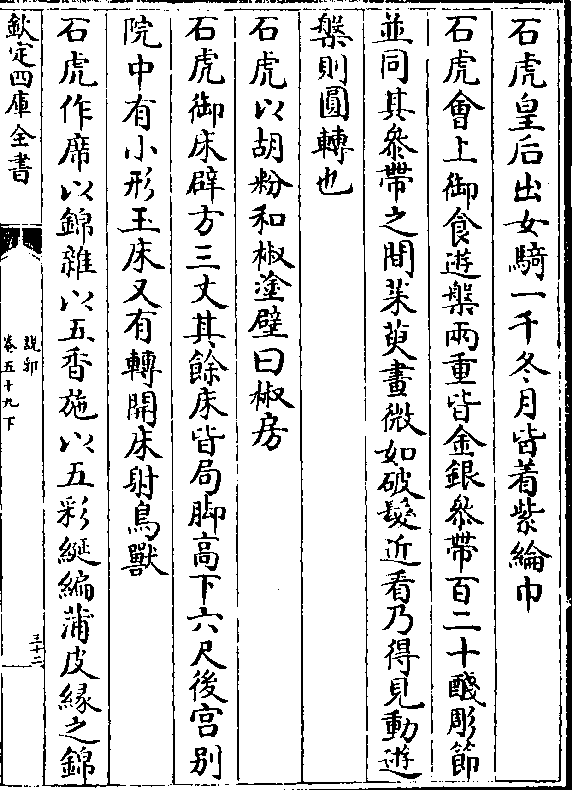 石虎皇后出女騎一千冬月皆着紫綸巾
石虎會上御食遊槃兩重皆金銀叅帶百二十醆彫節
並同其叅帶之間茱萸畫微如破髮近看乃得見動遊
槃則圓轉也
石虎以胡粉和椒塗壁曰椒房
石虎御床辟方三丈其餘床皆局脚高下六尺後宫别
院中有小形玉床又有轉開床射鳥獸
石虎作席以錦雜以五香施以五彩綖編蒲皮緣之錦
欽定四庫全書
說郛
卷五十九下
三十二